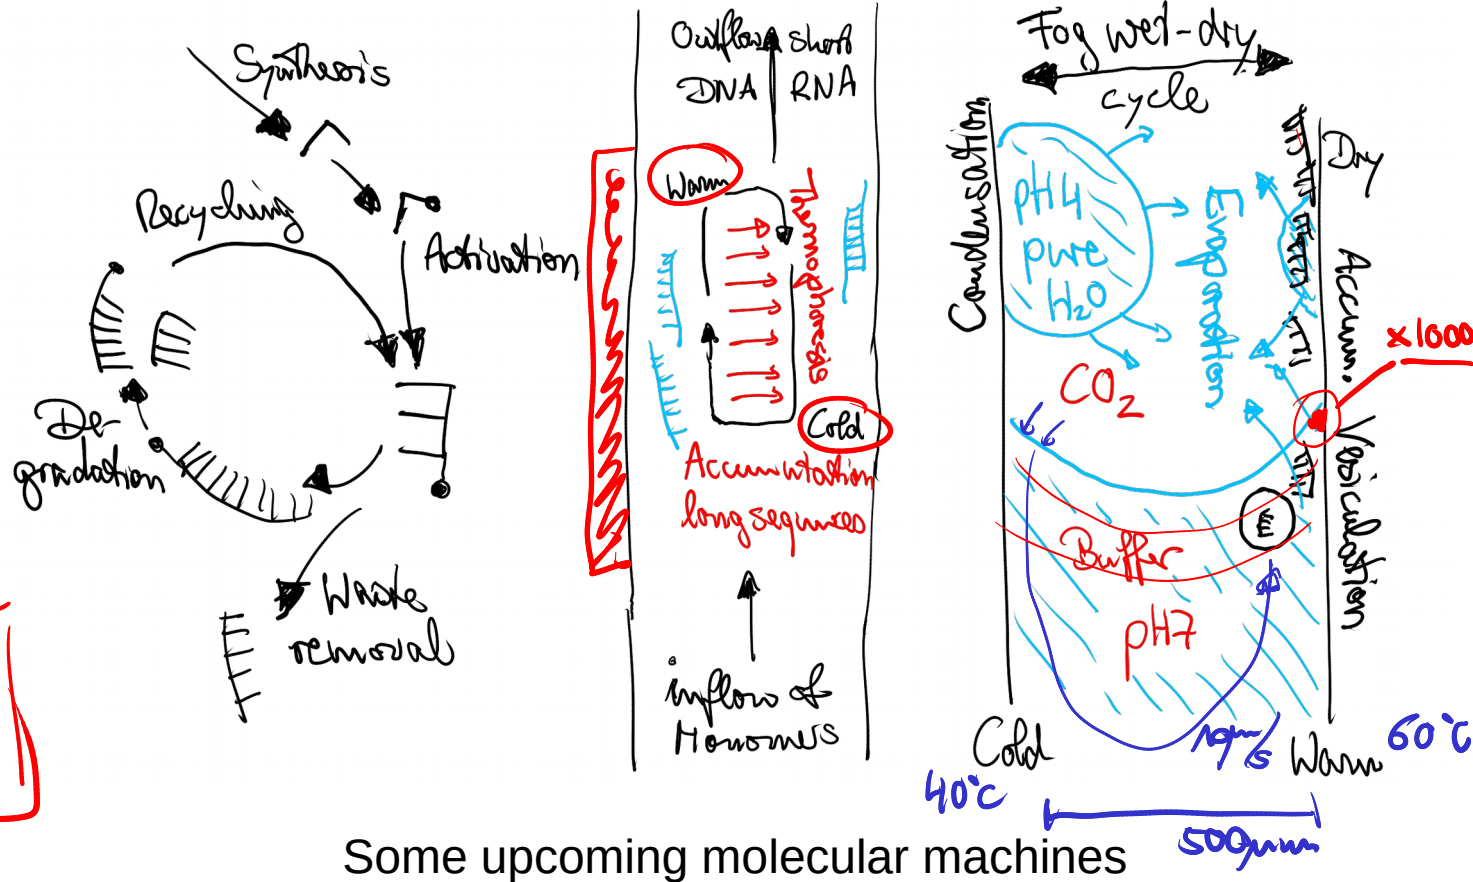 Synthesis
Recycling
Activation
De-
gradation
Waste
removal
Outflow short
DNA RNA
Warm
Thermophoresis
Cold
Accumulation
long sequences
inflow of
Monomers
Fog wet-dry
cycle
Condensation
pH4
pure
H2O
Evaporation
CO2
Dry
Accum.
Vesiculation
x1000
Buffer
pH7
Cold
40°C
Warm
60°C
500µm
Some upcoming molecular machines